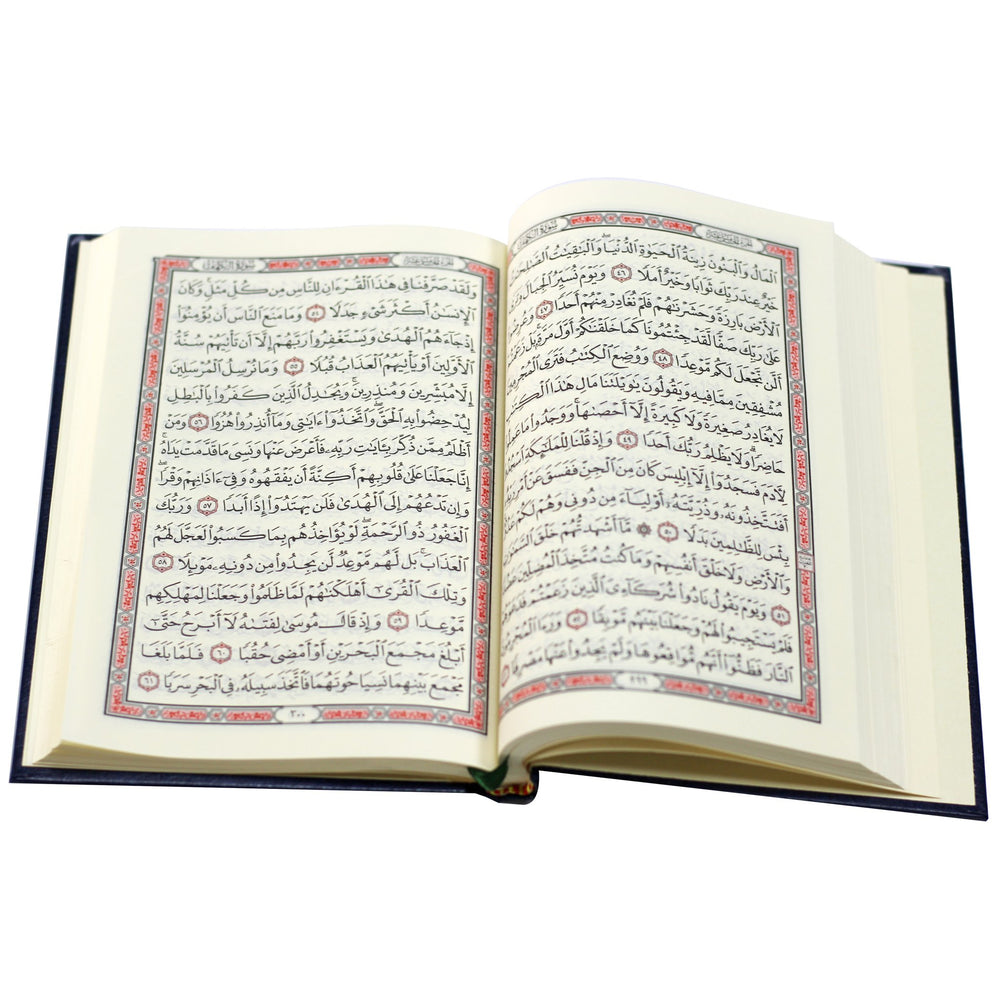 الجزء الخامس عشر سُورَةُ الكَهْفِ
ٱلْمَالُ وَٱلْبَنُونَ زِينَةُ ٱلْحَيَوٰةِ ٱلدُّنْيَا ۖ وَٱلْبَٰقِيَٰتُ
خَيْرٌ عِندَ رَبِّكَ ثَوَابًا وَخَيْرٌ أَمَلًا ٤٦ وَيَوْمَ نُسَيِّرُ ٱلْجِبَالَ
ٱلْأَرْضَ بَارِزَةً وَحَشَرْنَٰهُمْ فَلَمْ نُغَادِرْ مِنْهُمْ أَحَدًا ٤٧
عَلَىٰ رَبِّكَ صَفًّا لَّقَدْ جِئْتُمُونَا كَمَا خَلَقْنَٰكُمْ أَوَّلَ مَرَّةٍۭ ۚ بَلْ
أَلَّن نَّجْعَلَ لَكُم مَّوْعِدًا ٤٨ وَوُضِعَ ٱلْكِتَٰبُ فَتَرَى
مُشْفِقِينَ مِمَّا فِيهِ وَيَقُولُونَ يَٰوَيْلَتَنَا مَالِ هَٰذَا
لَا يُغَادِرُ صَغِيرَةً وَلَا كَبِيرَةً إِلَّآ أَحْصَىٰهَا ۚ وَوَجَدُوا۟ مَا
حَاضِرًا ۗ وَلَا يَظْلِمُ رَبُّكَ أَحَدًا ٤٩ وَإِذْ قُلْنَا لِلْمَلَٰٓئِكَةِ
لِـَٔادَمَ فَسَجَدُوٓا۟ إِلَّآ إِبْلِيسَ كَانَ مِنَ ٱلْجِنِّ فَفَسَقَ عَنْ أَمْرِ
أَفَتَتَّخِذُونَهُۥ وَذُرِّيَّتَهُۥٓ أَوْلِيَآءَ مِن دُونِى وَهُمْ لَكُمْ
بِئْسَ لِلظَّٰلِمِينَ بَدَلًا ٥٠ ۞ مَّآ أَشْهَدتُّهُمْ خَلْقَ
وَٱلْأَرْضِ وَلَا خَلْقَ أَنفُسِهِمْ وَمَا كُنتُ مُتَّخِذَ ٱلْمُضِلِّينَ
٥١ وَيَوْمَ يَقُولُ نَادُوا۟ شُرَكَآءِىَ ٱلَّذِينَ زَعَمْتُمْ
فَلَمْ يَسْتَجِيبُوا۟ لَهُمْ وَجَعَلْنَا بَيْنَهُم مَّوْبِقًا ٥٢ وَرَءَا
ٱلنَّارَ فَظَنُّوٓا۟ أَنَّهُم مُّوَاقِعُوهَا وَلَمْ يَجِدُوا۟ عَنْهَا مَصْرِفًا
٢٩٩
الجزء الخامس عشر سُورَةُ الكَهْفِ
وَلَقَدْ صَرَّفْنَا فِى هَٰذَا ٱلْقُرْءَانِ لِلنَّاسِ مِن كُلِّ مَثَلٍ ۚ وَكَانَ
ٱلْإِنسَٰنُ أَكْثَرَ شَىْءٍ جَدَلًا ٥٤ وَمَا مَنَعَ ٱلنَّاسَ أَن يُؤْمِنُوٓا۟
إِذْ جَآءَهُمُ ٱلْهُدَىٰ وَيَسْتَغْفِرُوا۟ رَبَّهُمْ إِلَّآ أَن تَأْتِيَهُمْ سُنَّةُ
ٱلْأَوَّلِينَ أَوْ يَأْتِيَهُمُ ٱلْعَذَابُ قُبُلًا ٥٥ وَمَا نُرْسِلُ ٱلْمُرْسَلِينَ
إِلَّا مُبَشِّرِينَ وَمُنذِرِينَ ۚ وَيُجَٰدِلُ ٱلَّذِينَ كَفَرُوا۟ بِٱلْبَٰطِلِ
لِيُدْحِضُوا۟ بِهِ ٱلْحَقَّ ۖ وَٱتَّخَذُوٓا۟ ءَايَٰتِى وَمَآ أُنذِرُوا۟ هُزُوًا ٥٦ وَمَنْ
أَظْلَمُ مِمَّن ذُكِّرَ بِـَٔايَٰتِ رَبِّهِۦ فَأَعْرَضَ عَنْهَا وَنَسِىَ مَا قَدَّمَتْ يَدَاهُ ۚ
إِنَّا جَعَلْنَا عَلَىٰ قُلُوبِهِمْ أَكِنَّةً أَن يَفْقَهُوهُ وَفِىٓ ءَاذَانِهِمْ وَقْرًا ۖ
وَإِن تَدْعُهُمْ إِلَى ٱلْهُدَىٰ فَلَن يَهْتَدُوٓا۟ إِذًا أَبَدًا ٥٧ وَرَبُّكَ
ٱلْغَفُورُ ذُو ٱلرَّحْمَةِ ۖ لَوْ يُؤَاخِذُهُم بِمَا كَسَبُوا۟ لَعَجَّلَ لَهُمُ
ٱلْعَذَابَ ۚ بَل لَّهُم مَّوْعِدٌ لَّن يَجِدُوا۟ مِن دُونِهِۦ مَوْئِلًا ٥٨
وَتِلْكَ ٱلْقُرَىٰٓ أَهْلَكْنَٰهُمْ لَمَّا ظَلَمُوا۟ وَجَعَلْنَا لِمَهْلِكِهِم
مَّوْعِدًا ٥٩ وَإِذْ قَالَ مُوسَىٰ لِفَتَىٰهُ لَآ أَبْرَحُ حَتَّىٰٓ
أَبْلُغَ مَجْمَعَ ٱلْبَحْرَيْنِ أَوْ أَمْضِىَ حُقُبًا ٦٠ فَلَمَّا بَلَغَا
مَجْمَعَ بَيْنِهِمَا نَسِيَا حُوتَهُمَا فَٱتَّخَذَ سَبِيلَهُۥ فِى ٱلْبَحْرِ سَرَبًا ٦١
٣٠٠